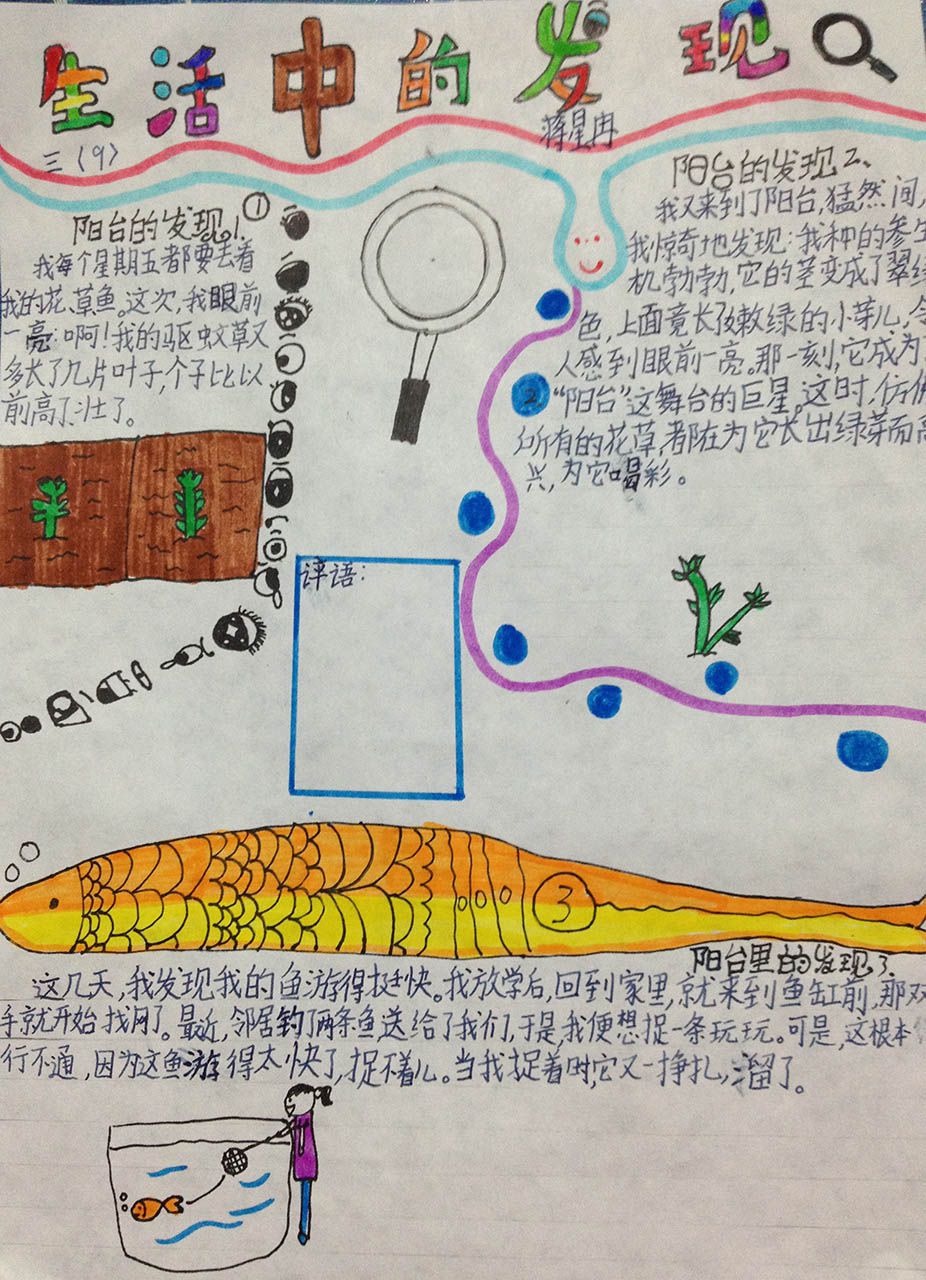 生活中的发现
蒋星冉
三〈9〉
阳台的发现1、
①
我每个星期五都要去看
我的花、草鱼。这次,我眼前
一亮:啊!我的驱蚊草又
多长了几片叶子,个子比以
前高了、壮了。
阳台的发现2、
我又来到了阳台,猛然间,
我惊奇地发现:我种的参生
机勃勃,它的茎变成了翠绿
色,上面竟长了嫩绿的小芽儿,令
人感到眼前一亮。那一刻,它成为了
2
“阳台”这舞台的巨星。这时,仿佛
所有的花草,都在为它长出绿芽而高
兴,为它喝彩。
评语:
3
阳台里的发现3、
这几天,我发现我的鱼游得挺快。我放学后,回到家里,就来到鱼缸前,那双
手就开始找网了。最近,邻居钓了两条鱼送给了我们,于是我便想捉一条玩玩。可是,这根本
行不通,因为这鱼游得太快了,捉不着儿。当我捉着时,它又一挣扎,溜了。